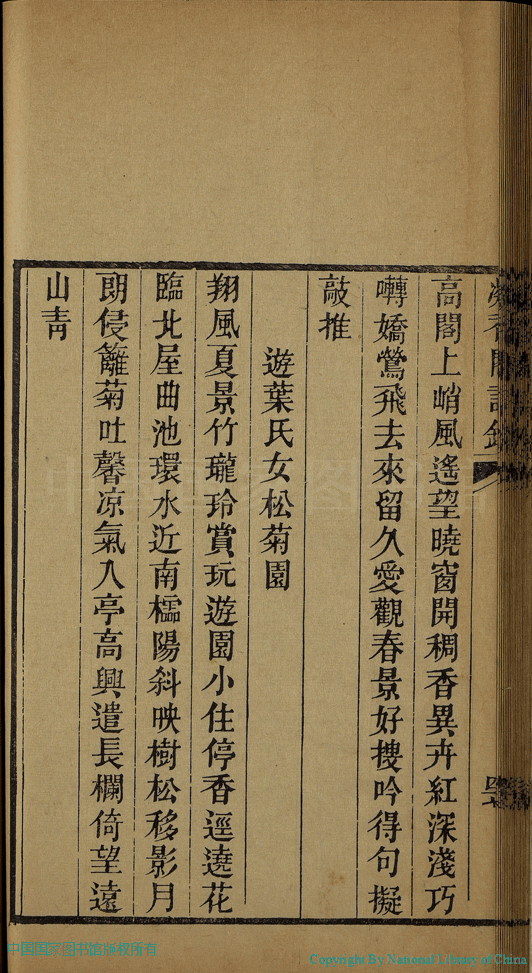 高閣上峭風遙望曉窗開稠香異卉紅深淺巧
囀嬌鶯飛去來留久愛觀春景好搜吟得句擬
敲推
遊葉氏女松菊園
翔風夏景竹瓏玲賞玩遊園小住停香逕遶花
臨北屋曲池環水近南櫺陽斜映樹松移影月
朗侵籬菊吐馨凉氣入亭高興遣長欄倚望遠
山青
中国国家图书馆版权所有
Copyright By National Library of China